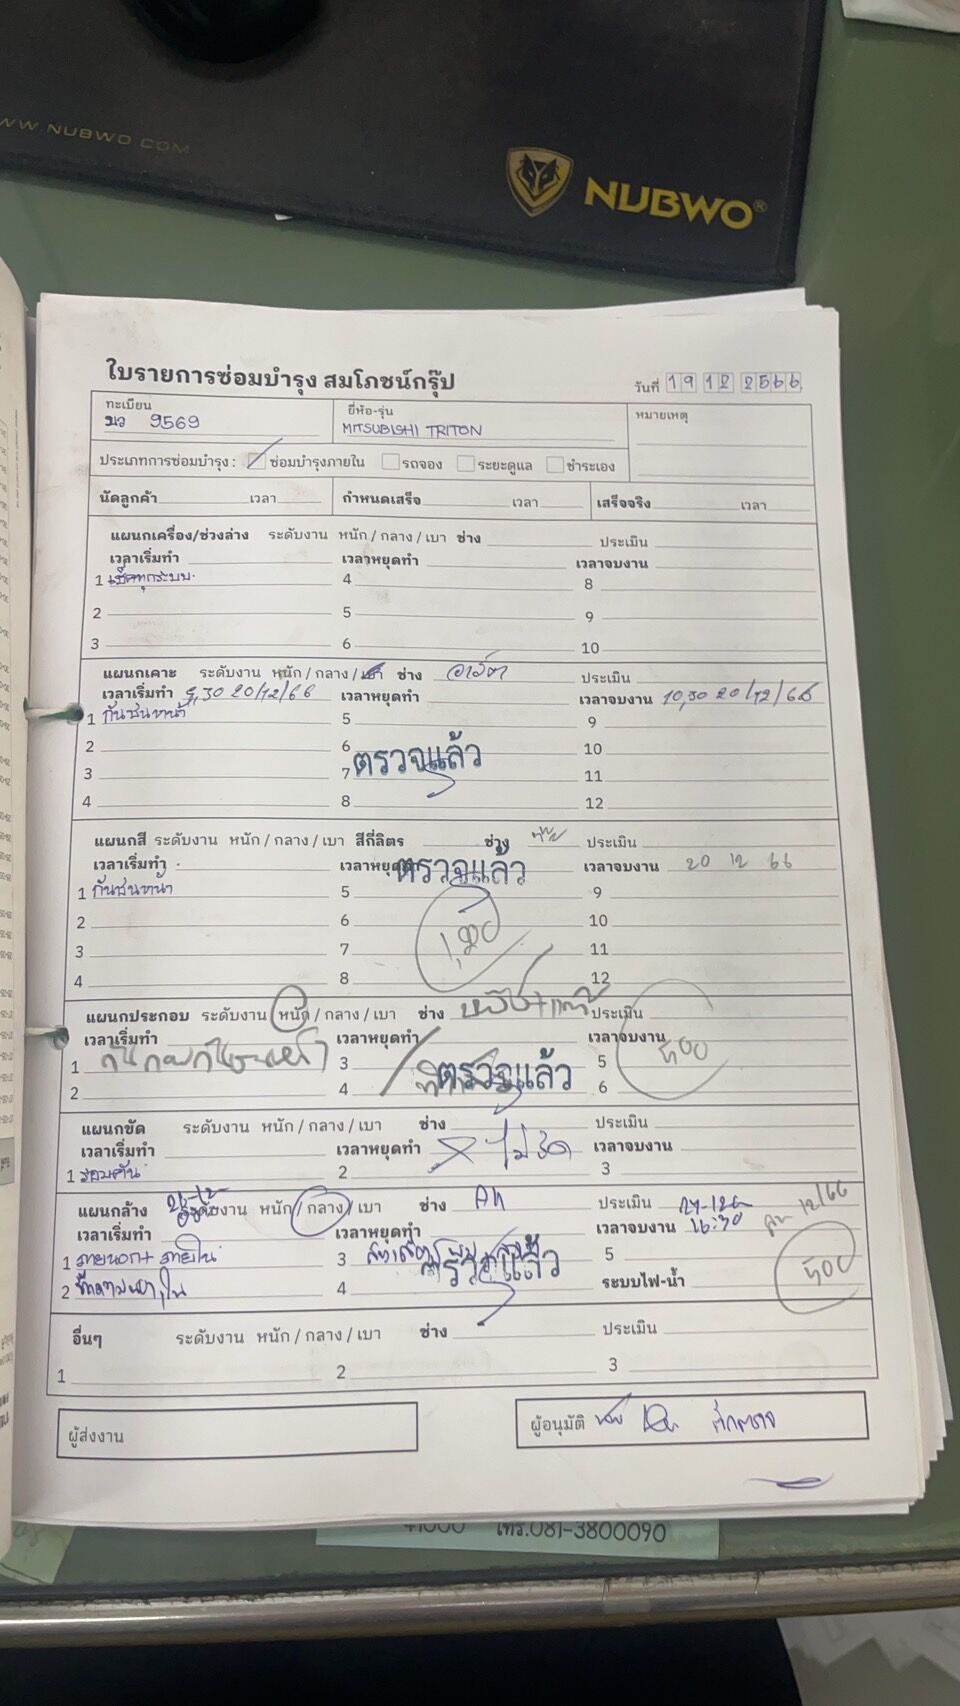 WW.NUBWO.COM
NUBWO®
ใบรายการซ่อมบำรุง สมโภชน์กรุ๊ป
วันที่ 19 12 2566
ทะเบียน
9569
ยี่ห้อ-รุ่น
MITSUBISHI TRITON
หมายเหตุ
ประเภทการซ่อมบำรุง : ซ่อมบำรุงภายใน รถจอง ระยะดูแล ชำระเอง
นัดลูกค้า เวลา กำหนดเสร็จ เวลา เสร็จจริง เวลา
แผนกเครื่อง/ช่วงล่าง ระดับงาน หนัก / กลาง / เบา ช่าง ประเมิน
เวลาเริ่มทำ เวลาหยุดทำ เวลาจบงาน
1 เช็คทุกระบบ 4 8
2 5 9
3 6 10
แผนกเคาะ ระดับงาน หนัก / กลาง / เบา ช่าง ประเมิน
เวลาเริ่มทำ 9,30 20/12/66 เวลาหยุดทำ เวลาจบงาน 10,30 20/12/66
1 กันชนหน้า 5 9
2 6 10
3 7 ตรวจแล้ว 11
4 8 12
แผนกสี ระดับงาน หนัก / กลาง / เบา สีกี่ลิตร ช่าง ประเมิน
เวลาเริ่มทำ เวลาหยุดทำ ตรวจแล้ว เวลาจบงาน 20 12 66
1 กันชนหน้า 5 9
2 6 10
3 7 11
4 8 12
แผนกประกอบ ระดับงาน หนัก / กลาง / เบา ช่าง ประเมิน
เวลาเริ่มทำ เวลาหยุดทำ เวลาจบงาน 500
1 3 ตรวจแล้ว 5
2 4 6
แผนกขัด ระดับงาน หนัก / กลาง / เบา ช่าง ประเมิน
เวลาเริ่มทำ เวลาหยุดทำ ไม่ขัด เวลาจบงาน
1 รอบคัน 2 3
แผนกล้าง ระดับงาน หนัก / กลาง / เบา ช่าง ประเมิน
เวลาเริ่มทำ เวลาหยุดทำ เวลาจบงาน 16:30
1 ภายนอก + ภายใน 3 ตรวจแล้ว 5
2 4 ระบบไฟ-น้ำ 500
อื่นๆ ระดับงาน หนัก / กลาง / เบา ช่าง ประเมิน
1 2 3
ผู้ส่งงาน
ผู้อนุมัติ
41000 โทร.081-3800090